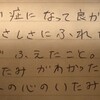 症になって良か
さしさにふれ
ふえたこと。
たみがわかった
の心のいたみ